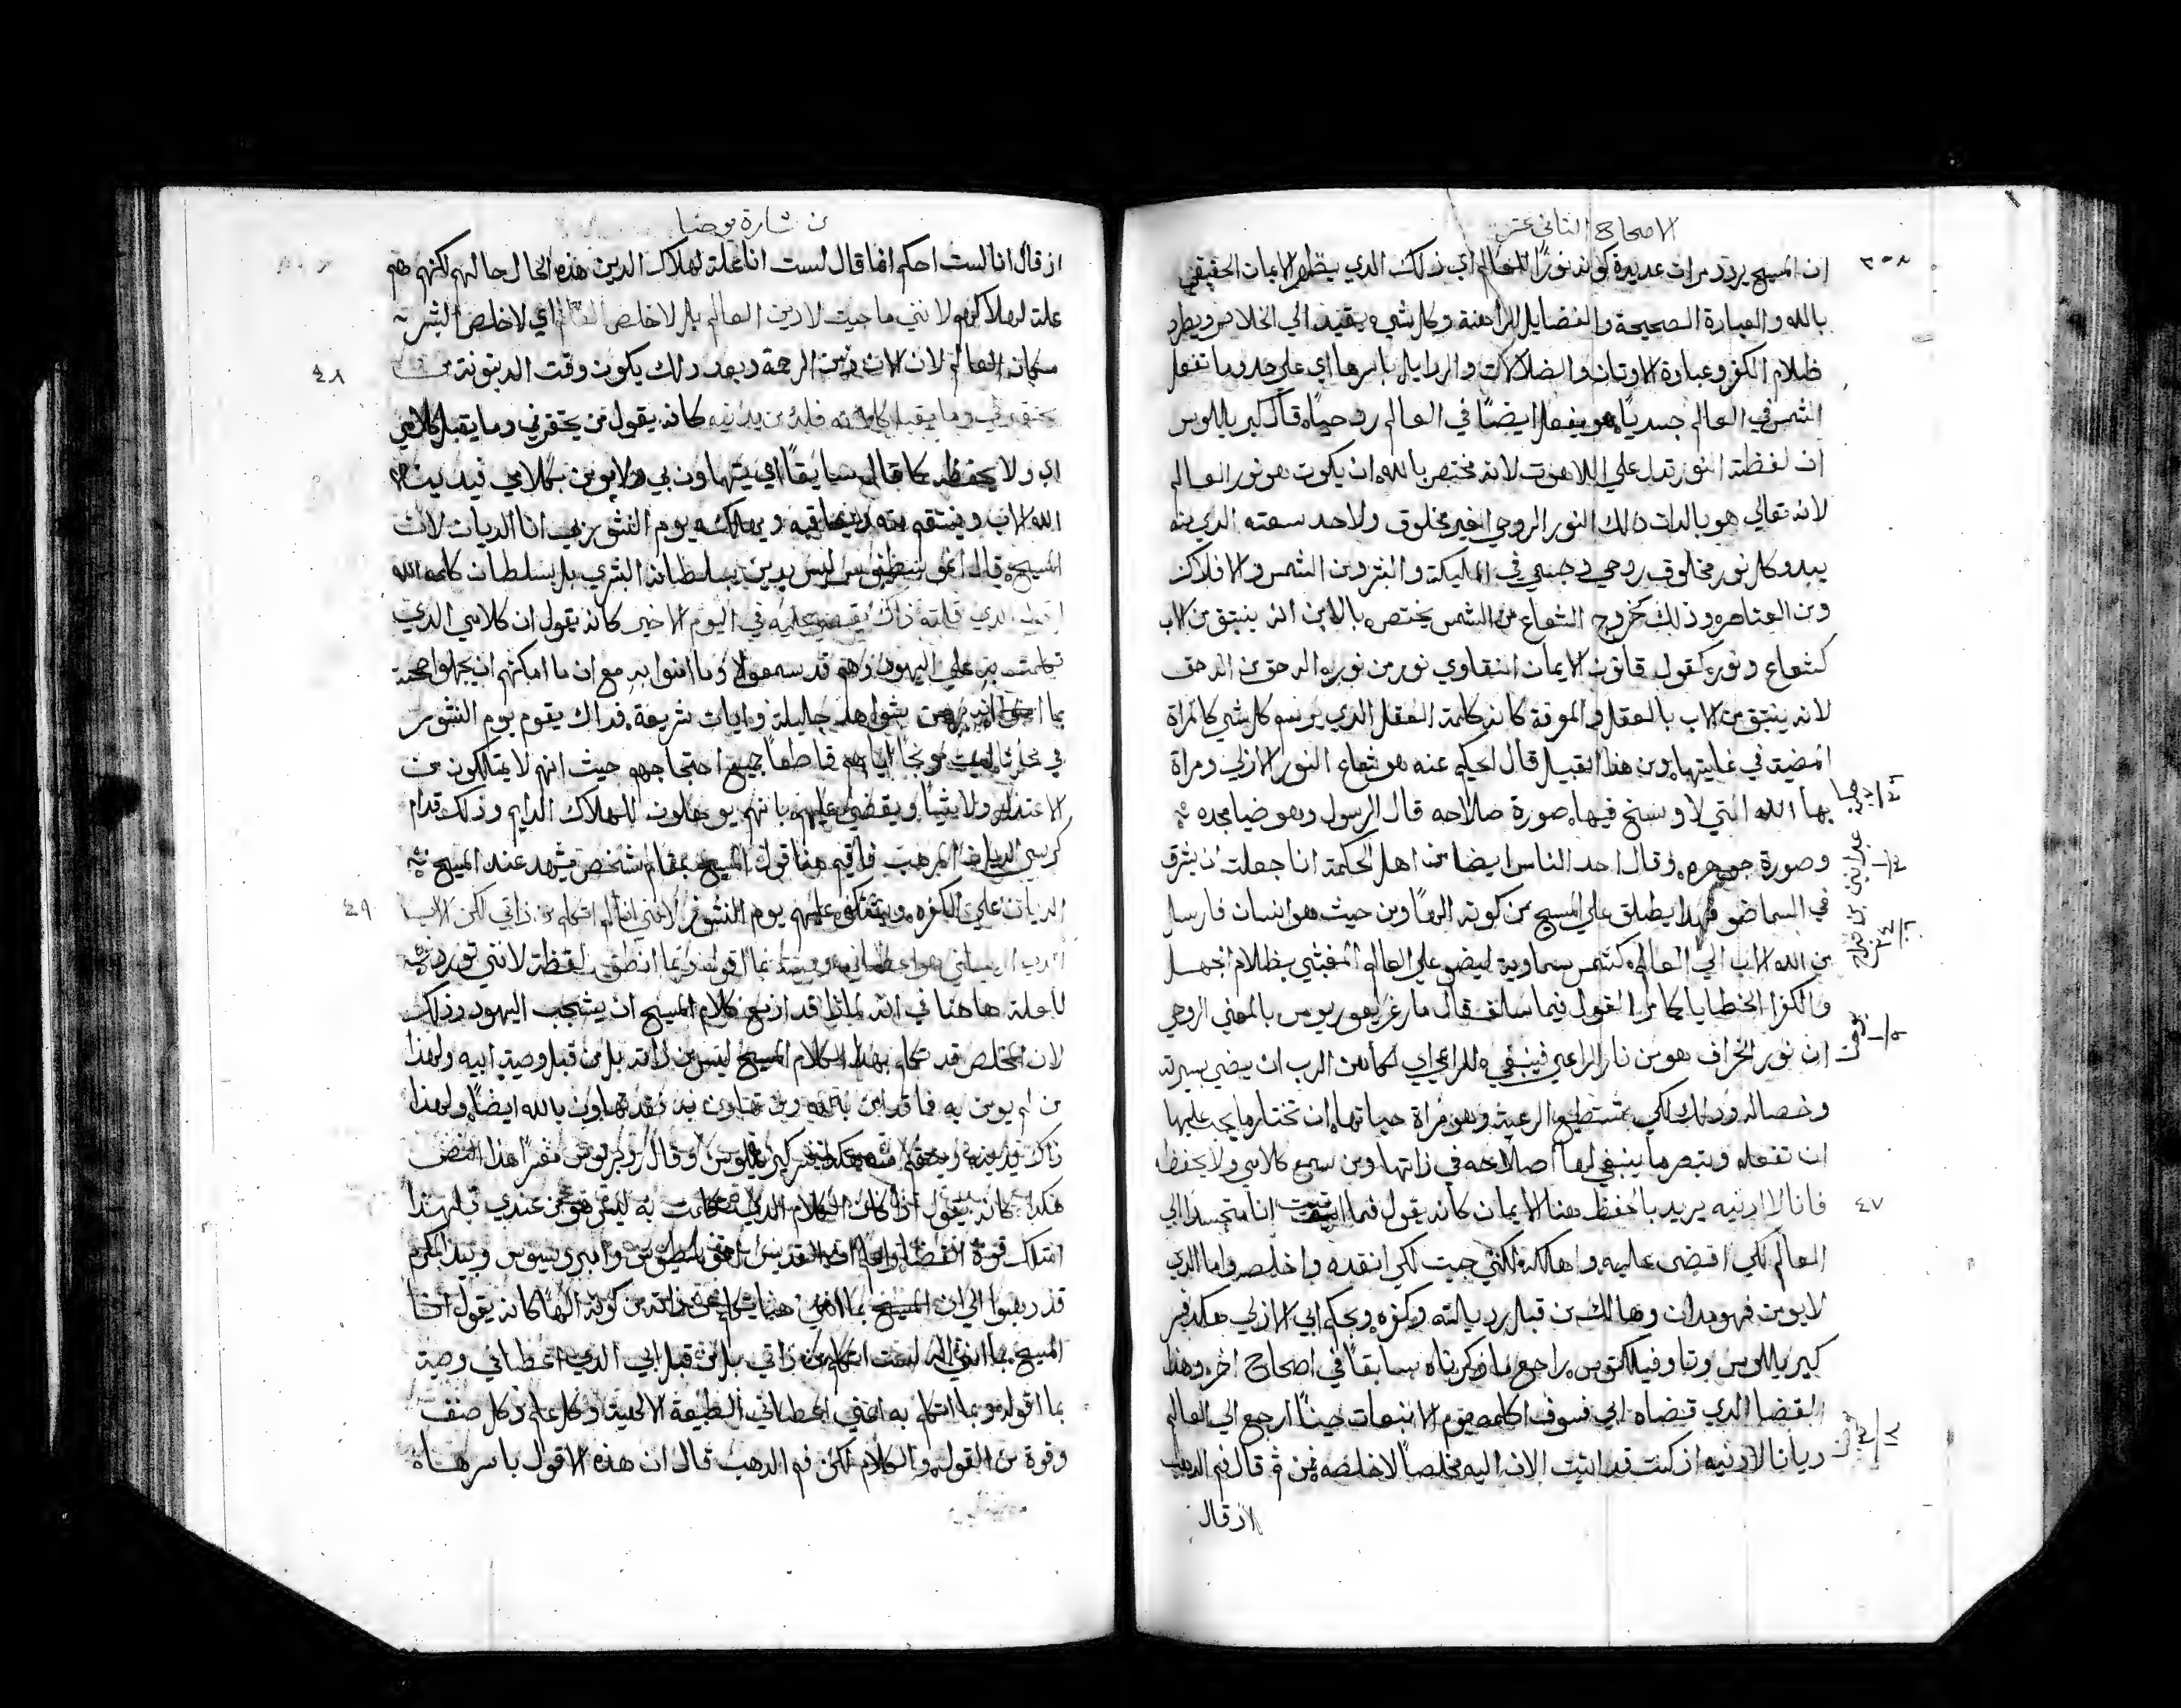 الاصحاح الثاني عشر
٣٠٨
ان المسيح يردد مرات عديدة كونه نورًا للعالم اي ذلك الذي يظهر الايمان الحقيقي
بالله والعبادة الصحيحة والفضايل الراهنة وكل شي يقيد الي الخلاص ويطرد
ظلام الكفر وعبادة الاوتان والضلالات والردايل باسرها اي علي حدو ما تفعل
الشمس في العالم جسديًا هو يفعل ايضًا في العالم روحيًا قال كيرياللوس
ان لفظة النور تدل علي اللاهوت لانه مختص بالله ان يكون هو نور العالم
لانه تعالي هو بالدات دالك النور الروحي الغير مخلوق ولاحد سعته الدي منه
يبدو كل نور مخلوق روحي وجسمي في المليكة والبشر ومن الشمس والافلاك
ومن العناصر وذلك كخروج الشعاع من الشمس يختص بالابن انه ينبتق من الاب
كشعاع ونور كقول قانون الايمان النيقاوي نور من نور اله حق من اله حق
لانه ينبتق من الاب بالعقل والمعرفة كانه كلمة العقل الدي يرسم كل شي كالمراة
المضية في غايتها ومن هذا القبيل قال الحكيم عنه هو شعاع النور الازلي ومراة
بها الله التي لا وسخ فيها صورة صلاحه قال الرسول وهو ضيا مجده
وصورة جوهره وقال احد الناس ايضا من اهل الحكمة انا جعلت ان يشرق
في السما ضو فهدا يطلق علي المسيح من كونه الهًا ومن حيث هو انسان فارسل
من الله الاب الي العالم كشمس سماوية ليضو علي العالم المغشي بظلام الجهل
والكفر الخطايا كما مر القول فيما سلف قال مار غريغوريوس بالمعني الروحي
ان نور الخراف هو من نار الراعي فينبغي للراعي اي لكاهن الرب ان يضي بسيرته
وخصاله ودلك لكي تستطيع الرعية وهو مراة حياتها ان تختار ما يجب عليها
ان تفعله وتبصر ما ينبغي لها اصلاحه في ذاتها ومن سمع كلامي ولا يحفظ
٤٧
فانا لا ادينه يريد بالحفظ هنا الايمان كانه يقول فما اتيت انا متجسدا الي
العالم لكي اقضي عليه واهلكه لكنني جيت لكي انقده واخلصه واما الذي
لا يومن فهو مدان وهالك من قبل رديالته وكفره وبحكم ابي الازلي هكدا فسر
كيرياللوس وتاوفيلكتوس راجع ما ذكرناه سابقًا في اصحاح اخر وهذا
القضا الدي قضاه ابي فسوف اكمله يوم الانبعات حينًا ارجع الي العالم
ديانا لادنيه از كنت قد اتيت الان اليه مخلصًا لاخلصه فمن ثم قال فم الدهب
لاز قال
من بشارة يوحنا
از قال انا لست احكم انما قال لست انا علة لهلاك الدين هذه الحال حالهم لكنهم هم
علة لهلاكهم لانني ما جيت لادين العالم بل لاخلص العالم اي لاخلص البشر
سكان العالم لان الان زمن الرحمة وبعد دلك يكون وقت الدينونة من
٤٨
يحتقرني وما يقبل كلامي فله من يدينه كانه يقول من يحتقرني وما يقبل كلامي
اي ولا يحفظه كما قال سابقًا اي يتهاون بي ولا يومن بكلامي فيدينه
الله الاب وينتقم منه ويعاقبه ويهلكه يوم النشور بي انا الديان لان
المسيح قال ليس يدين بسلطانه البشري بل بسلطان كلمة الله
الذي قلته ذاك يقضي عليه في اليوم الاخير كانه يقول ان كلامي الدي
تكلمت به علي اليهود وهم قد سمعوا وما امنوا به مع ان ما امكنهم ان يجهلوا صحته
بشواهد جليلة وايات شريفة فداك يقوم يوم النشور
موبخًا اياهم قاطعًا جميع احتجاجهم حيث انهم لا يمتلكون من
الاعتدار ولا شيًا ويقضي عليهم بانهم يوهلون للهلاك الدايم وذلك قدام
كرسي الديان المرهب فاقيم هنا قول المسيح بمقام شخص يشهد عند المسيح
الديان علي الكفرة ويشتكي عليهم يوم النشور لانني انا لم اتكلم من ذاتي لكن الاب
٤٩
الذي ارسلني هو اعطاني وصية بما اقول وبما انطق لفظة لانني تورد
للعلة هاهنا في انه لماذا قد ازمع كلام المسيح ان يشجب اليهود وذلك
لان المخلص قد تكلم بهذا الكلام المسيح ليس من ذاته بل من قبل وصية ابيه ولهذا
من لم يومن به فما قد امن بالله ومن تهاون به فقد تهاون بالله ايضًا ولهذا
ذاك يدينه وينتقم منه هكذا فسر كيرياللوس وقال مفسرًا هذا النص
هكدا كانه يقول اذا كان الكلام الذي تكلمت به ليس هو من عندي فلهذا
امتلك قوة القضا واعلم ان القديسين وامبروسيوس وبيدا المكرم
قد ذهبوا الي ان المسيح هنا يتكلم عن ذاته من كونه الهًا كانه يقول انا
المسيح بما انني اله لست اتكلم من ذاتي بل من قبل ابي الذي اعطاني وصية
بما اقوله وبما اتكلم به اعني اعطاني الطبيعة الالهية وكل علم وكل صنف
وقوة من القول والكلام لكن فم الدهب قال ان هذه الاقول باسرها